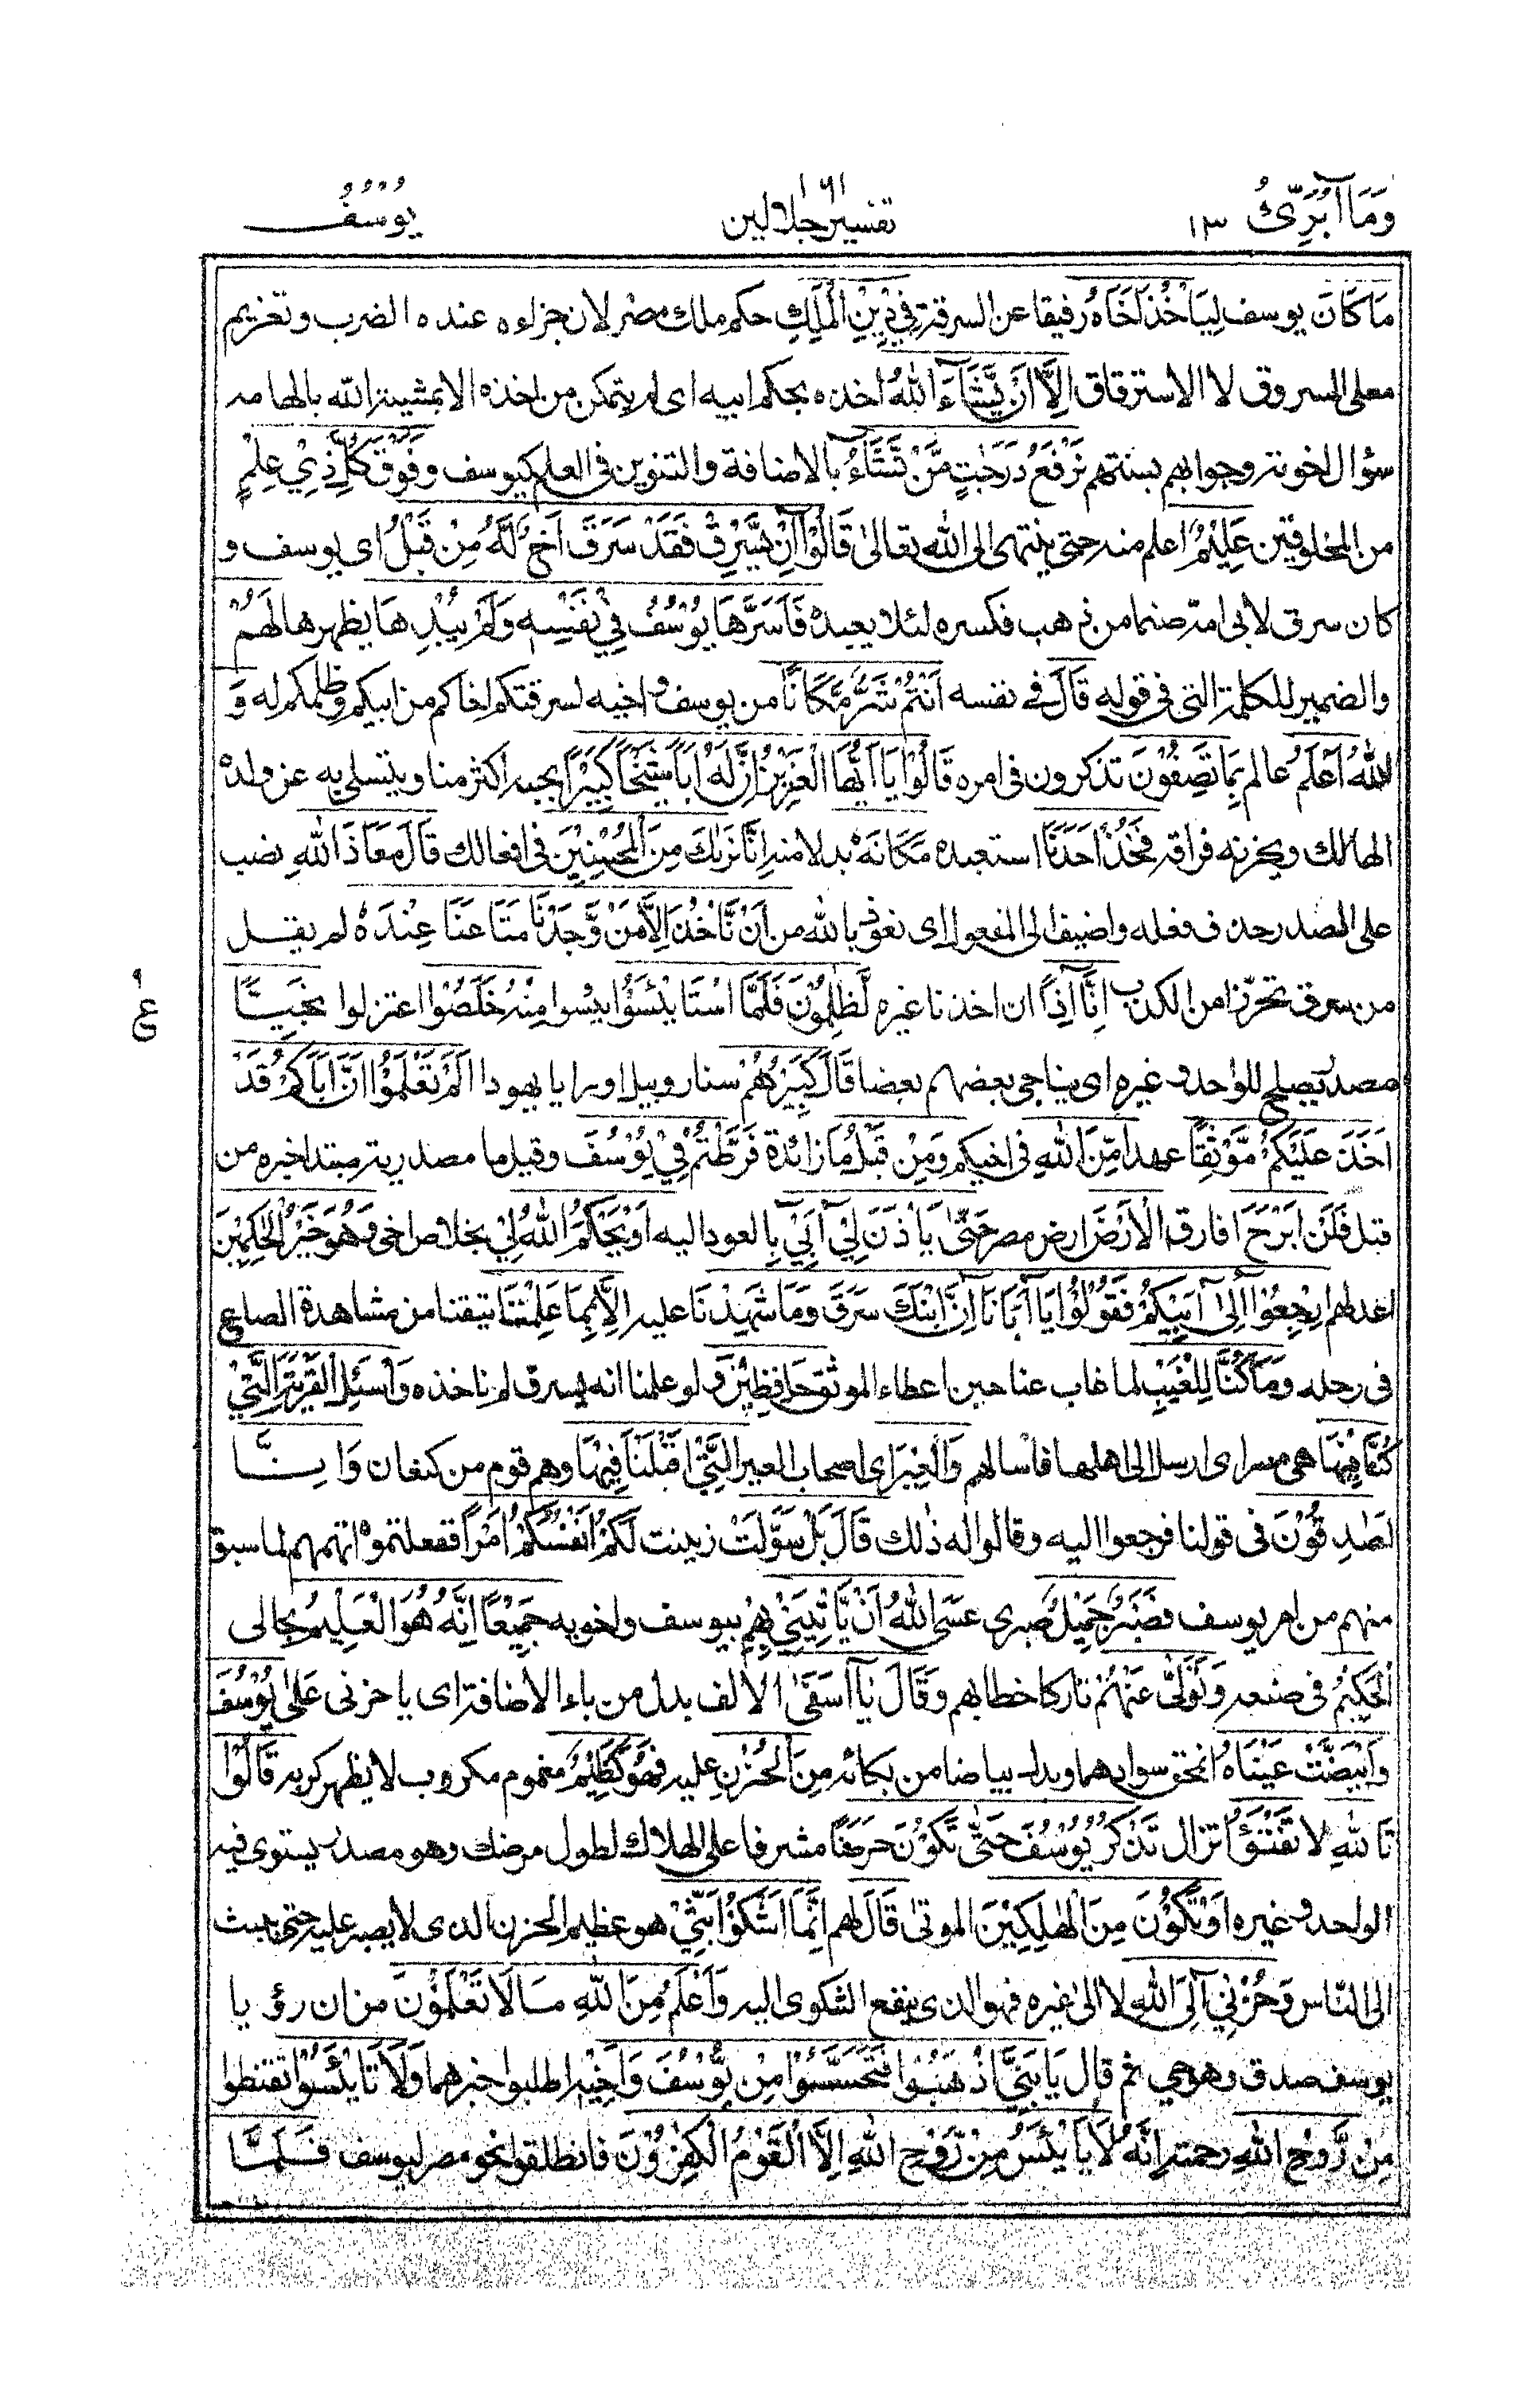 وَمَآ أُبَرِّئُ ١٣
١٩١
تفسير جلالين
يُوسُف
مَا كَانَ يوسف لِيَأْخُذَ أَخَاهُ رفيقا عن السرقة فِي دِيْنِ الْمَلِكِ حكم ملك مصر لان جزاءه عنده الضرب وتغريم
مثلي المسروق لا الاسترقاق اِلَّا اَنْ يَّشَآءَ اللهُ اخذه بحكم ابيه اى لم يتمكن من اخذه الا بمشية الله بالهامه
سؤال اخوته وجوابهم بسنتهم نَرْفَعُ دَرَجٰتٍ مَّنْ نَّشَآءُ بالاضافة والتنوين فى العلم كيوسف وَفَوْقَ كُلِّ ذِيْ عِلْمٍ
من المخلوقين عَلِيْمٌ اعلم منه حتى ينتهى الى الله تعالىٰ قَالُوْا اِنْ يَّسْرِقْ فَقَدْ سَرَقَ اَخٌ لَّهٗ مِنْ قَبْلُ اى يوسف و
كان سرق لابى امه صنما من ذهب فكسره لئلا يعبده فَاَسَرَّهَا يُوْسُفُ فِيْ نَفْسِهٖ وَلَمْ يُبْدِهَا يظهرها لَهُمْ
والضمير للكلمة التى فى قوله قَالَ فى نفسه اَنْتُمْ شَرٌّ مَّكَانًا من يوسف واخيه لسرقتكم اخاكم من ابيكم وظلمكم له وَ
اللهُ اَعْلَمُ عالم بِمَا تَصِفُوْنَ تذكرون فى امره قَالُوْا يَا اَيُّهَا الْعَزِيْزُ اِنَّ لَهٗ اَبًا شَيْخًا كَبِيْرًا يحبه اكثر منا ويتسلى به عن ولده
الهالك ويحزنه فراقه فَخُذْ اَحَدَنَا استعبده مَكَانَهٗ بدلا منه اِنَّا نَرٰىكَ مِنَ الْمُحْسِنِيْنَ فى افعالك قَالَ مَعَاذَ اللهِ نصب
على المصدر حذف فعله واضيف الى المفعول اى نعوذ بالله من اَنْ نَّاْخُذَ اِلَّا مَنْ وَّجَدْنَا مَتَاعَنَا عِنْدَهٗ لم يقل
من سرق تحرزا من الكذب اِنَّا اِذًا ان اخذنا غيره لَّظٰلِمُوْنَ فَلَمَّا اسْتَايْئَسُوْا يئسوا مِنْهُ خَلَصُوْا اعتزلوا نَجِيًّا
مصدر يصلح للواحد وغيره اى يناجى بعضهم بعضا قَالَ كَبِيْرُهُمْ سنا روبيل او رايا يهودا اَلَمْ تَعْلَمُوْا اَنَّ اَبَاكُمْ قَدْ
اَخَذَ عَلَيْكُمْ مَّوْثِقًا عهدا مِّنَ اللهِ فى اخيكم وَمِنْ قَبْلُ مَا زائدة فَرَّطْتُمْ فِيْ يُوْسُفَ وقيل ما مصدرية مبتدا خبره من
قبل فَلَنْ اَبْرَحَ افارق الْاَرْضَ ارض مصر حَتّٰى يَاْذَنَ لِيْ اَبِيْ بالعود اليه اَوْ يَحْكُمَ اللهُ لِيْ بخلاص اخى وَهُوَ خَيْرُ الْحٰكِمِيْنَ
اعدلهم اِرْجِعُوْا اِلٰى اَبِيْكُمْ فَقُوْلُوْا يَا اَبَانَا اِنَّ ابْنَكَ سَرَقَ وَمَا شَهِدْنَا عليه اِلَّا بِمَا عَلِمْنَا تيقنا من مشاهدة الصاع
فى رحله وَمَا كُنَّا لِلْغَيْبِ لما غاب عنا حين اعطاء الموثق حَافِظِيْنَ ولو علمنا انه يسرق لم ناخذه وَاسْئَلِ الْقَرْيَةَ الَّتِيْ
كُنَّا فِيْهَا هى مصر اى ارسل الى اهلها فاسالهم وَالْعِيْرَ اى اصحاب العير الَّتِيْ اَقْبَلْنَا فِيْهَا وهم قوم من كنعان وَاِنَّا
لَصٰدِقُوْنَ فى قولنا فرجعوا اليه وقالوا له ذٰلك قَالَ بَلْ سَوَّلَتْ زينت لَكُمْ اَنْفُسُكُمْ اَمْرًا ففعلتموه اتهمهم لما سبق
منهم من امر يوسف فَصَبْرٌ جَمِيْلٌ صبرى عَسَى اللهُ اَنْ يَّاْتِيَنِيْ بِهِمْ بيوسف واخويه جَمِيْعًا اِنَّهٗ هُوَ الْعَلِيْمُ بحالى
الْحَكِيْمُ فى صنعه وَتَوَلّٰى عَنْهُمْ تاركا خطابهم وَقَالَ يَا اَسَفٰى الالف بدل من ياء الاضافة اى يا حزنى عَلٰى يُوْسُفَ
وَابْيَضَّتْ عَيْنَاهُ انمحق سوادهما وبدل بياضا من بكائه مِنَ الْحُزْنِ عليه فَهُوَ كَظِيْمٌ مغموم مكروب لا يظهر كربه قَالُوْا
تَاللهِ لا تَفْتَؤُا تزال تَذْكُرُ يُوْسُفَ حَتّٰى تَكُوْنَ حَرَضًا مشرفا على الهلاك لطول مرضك وهو مصدر يستوى فيه
الواحد وغيره اَوْ تَكُوْنَ مِنَ الْهٰلِكِيْنَ الموتى قَالَ لهم اِنَّمَا اَشْكُوْا بَثِّيْ هو عظيم الحزن الذى لا يصبر عليه حتى يبث
الى الناس وَحُزْنِيْ اِلَى اللهِ لا الى غيره فهو الذى ينفع الشكوى اليه وَاَعْلَمُ مِنَ اللهِ مَا لَا تَعْلَمُوْنَ من ان رؤيا
يوسف صدق وهو حى ثم قال يَا بَنِيَّ اذْهَبُوْا فَتَحَسَّسُوْا مِنْ يُّوْسُفَ وَاَخِيْهِ اطلبوا خبرهما وَلَا تَايْئَسُوْا تقنطوا
مِنْ رَّوْحِ اللهِ رحمته اِنَّهٗ لَا يَايْئَسُ مِنْ رَّوْحِ اللهِ اِلَّا الْقَوْمُ الْكٰفِرُوْنَ فانطلقوا نحو مصر ليوسف فَلَمَّا
٩
ع